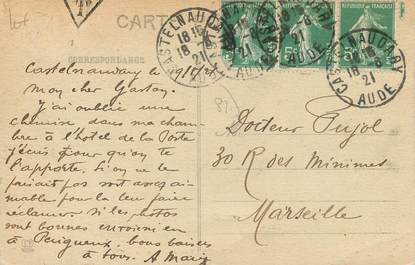 CARTE
CORRESPONDANCE
Castelnaudary le 19/8/21
Mon cher Gaston.
J'ai oublié une
chemise dans ma cham
bre à l'hotel de la Poste
j'écris pour qu'on te
l'apporte. Si on ne le
faisait pas sois assez ai-
mable pour la leur faire
réclamer. Si les photos
sont bonnes envoie en
à Périgueux. bons baisers
à tous. A Mary
Docteur Pujol
30 Rue des Minimes
Marseille
CASTELNAUDARY
18
21
AUDE
CASTELNAUDARY
18
21
AUDE